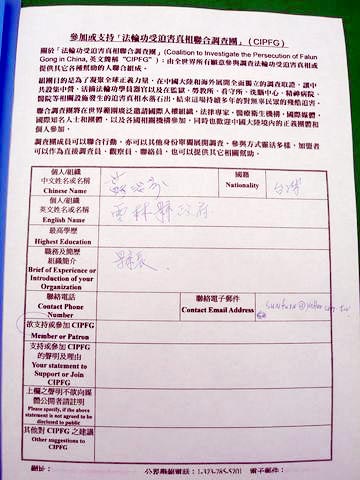 參加或支持「法輪功受迫害真相聯合調查團」(CIPFG)
關於「法輪功受迫害真相聯合調查團」(Coalition to Investigate the Persecution of Falun
Gong in China, 英文簡稱 "CIPFG")：由全世界所有願意參與調查法輪功受迫害真相或
提供其它各種幫助的人聯合組成。
組團目的是為了凝聚全球正義力量，在中國大陸和海外展開全面獨立的調查取證，讓中
共設集中營、活摘法輪功學員器官以及在監獄、勞教所、看守所、洗腦中心、精神病院、
醫院等相關設施發生的迫害真相水落石出，結束這場持續多年的對無辜民眾的殘酷迫害。
聯合調查團將在世界範圍廣泛邀請國際人權組織、法律專家、醫療衛生機構、國際媒體、
國際知名人士和團體，以及各國相關機構參加，同時也歡迎中國大陸境內的正義團體和
個人參加。
調查團成員可以聯合行動，亦可以其他身份單獨展開調查，參與方式靈活多樣，加盟者
可以作為直接調查員、觀察員、聯絡員，也可以提供其它相關幫助。
個人/組織
中文姓名或名稱
Chinese Name
蘇治芬
國籍
Nationality
台灣
個人/組織
英文姓名或名稱
English Name
雲林縣政府
最高學歷
Highest Education
職務及簡歷
組織簡介
Brief of Experience or
Introduction of your
Organization
縣長
聯絡電話
Contact Phone
Number
聯絡電子郵件
Contact Email Address
欲支持或參加 CIPFG
Member or Patron
支持或參加 CIPFG
的聲明及理由
Your statement to
Support or Join
CIPFG
上欄之聲明不欲向媒
體公開者請註明
Please specify, if the above
statement is not agreed to be
disclosed to public
其他對 CIPFG 之建議
Other suggestions to
CIPFG